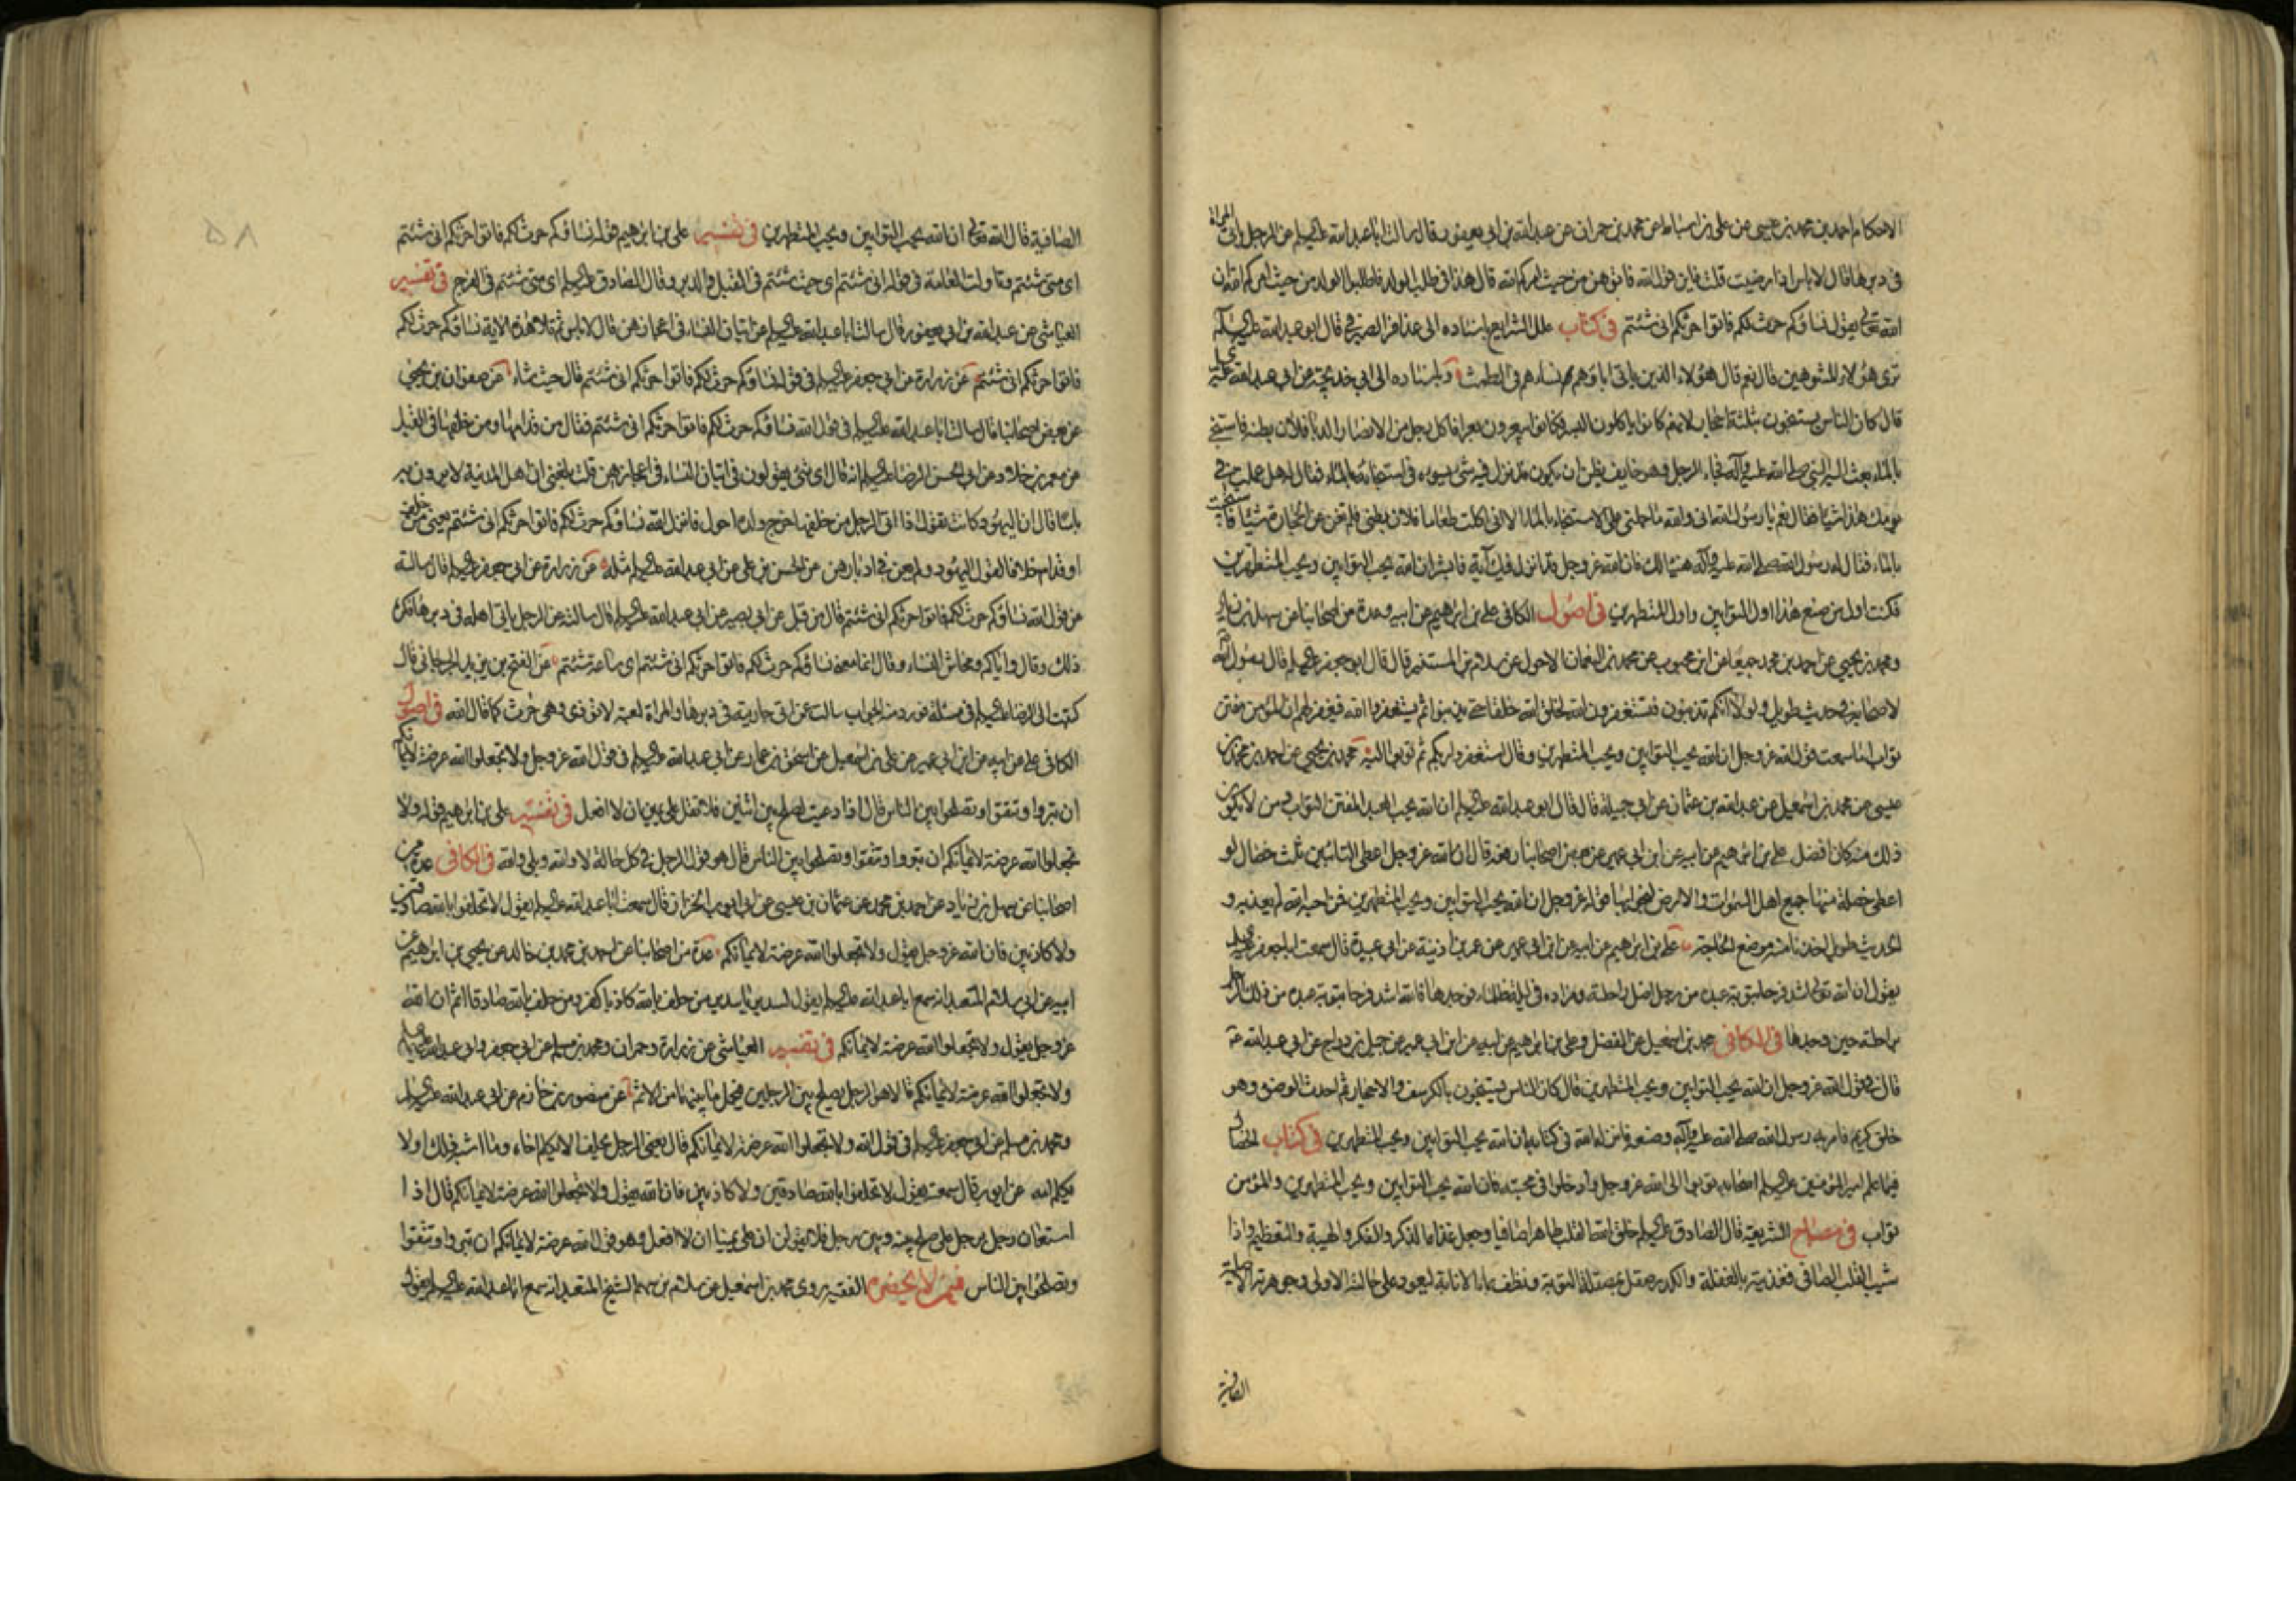 الاحكام احمد بن محمد بن عيسى عن على بن اسباط عن محمد بن حمران عن عبدالله بن ابى يعفور قال سالت اباعبدالله عليه السلم عن الرجل ياتى المراة
فى دبرها قال لاباس اذا رضيت قلت فاين قول الله فاتوهن من حيث امركم الله قال هذا فى طلب الولد فاطلبوا الولد من حيث امركم الله ان
الله تعالى يقول نساؤكم حرث لكم فاتوا حرثكم انى شئتم فى كتاب علل الشرايع باسناده الى عذافر الصيرفى قال ابوعبدالله عليه السلم
ترى هؤلاء المشوهين قال نعم قال هؤلاء الذين ياتى اباؤهم نساءهم فى الطمث وباسناده الى ابى خديجة عن ابى عبدالله عليه
قال كان الناس يستنجون بثلثة احجار لانهم كانوا ياكلون البسر فكانوا يبعرون بعرا فاكل رجل من الانصار الدبا فلان بطنه فاستنجى
بالماء بعث اليه النبى صلى الله عليه وآله فجاء الرجل وهو خايف يظن ان يكون قد نزل فيه شئ يسوءه فى استنجائه بالماء فقال له هل عملت فى
يومك هذا شيئا فقال نعم يا رسول الله انى والله ما حملنى على الاستنجاء بالماء الا انى اكلت طعاما فلان بطنى فلم تغن عنى الحجارة شيئا فاستنجيت
بالماء فقال له رسول الله صلى الله عليه وآله هنيئا لك فان الله عزوجل قد انزل فيك آية فابشر ان الله يحب التوابين ويحب المتطهرين
فكنت اول من صنع هذا اول التوابين واول المتطهرين فى اصول الكافى على بن ابرهيم عن ابيه وعدة من اصحابنا عن سهل بن زياد
ومحمد بن يحيى عن احمد بن محمد جميعا عن ابن محبوب عن محمد بن النعمان الاحول عن سلام بن المستنير قال قال ابوجعفر عليه السلم قال رسول الله
لاصحابه فى حديث طويل ولولا انكم تذنبون فتستغفرون الله لخلق الله خلقا حتى يذنبوا ثم يستغفروا الله فيغفر لهم ان المؤمن مفتن
تواب اما سمعت قول الله عزوجل ان الله يحب التوابين ويحب المتطهرين وقال استغفروا ربكم ثم توبوا اليه محمد بن يحيى عن احمد بن محمد بن
عيسى عن محمد بن اسمعيل عن عبدالله بن عثمان عن ابى جميلة قال قال ابوعبدالله عليه السلم ان الله يحب العبد المفتن التواب ومن لا يكون
ذلك منه كان افضل على بن ابرهيم عن ابيه عن ابن ابى عمير عن بعض اصحابنا رفعه قال ان الله عزوجل اعطى التائبين ثلث خصال لو
اعطى خصلة منها جميع اهل السموات والارض لنجوا بها قوله عزوجل ان الله يحب التوابين ويحب المتطهرين فمن احبه الله لم يعذبه و
الحديث طويل اخذنا منه موضع الحاجة على بن ابرهيم عن ابيه عن ابن ابى عمير عن عمر بن اذينة عن ابى عبيدة قال سمعت اباجعفر عليه السلم
يقول ان الله تعالى اشد فرحا بتوبة عبده من رجل اضل راحلته وزاده فى ليلة ظلماء فوجدها فالله اشد فرحا بتوبة عبده من ذلك الرجل
براحلته حين وجدها فى الكافى محمد بن اسمعيل عن الفضل وعلى بن ابرهيم عن ابيه عن ابن ابى عمير عن جميل بن دراج عن ابى عبدالله عه
قال فى قول الله عزوجل ان الله يحب التوابين ويحب المتطهرين قال كان الناس يستنجون بالكرسف والاحجار ثم احدث الوضوء وهو
خلق كريم فامر به رسول الله صلى الله عليه وآله وصنعه فانزل الله فى كتابه ان الله يحب التوابين ويحب المتطهرين فى كتاب الخصال
فيما علم اميرالمؤمنين عليه السلم اصحابه توبوا الى الله عزوجل وادخلوا فى محبته فان الله يحب التوابين ويحب المتطهرين والمؤمن
تواب فى مصباح الشريعة قال الصادق عليه السلم خلق الله القلب طاهرا صافيا وجعل غذاءه الذكر والفكر والهيبة والتعظيم واذا
شيب القلب الصافى فغذيته بالغفلة والكدر صقل بمصقلة التوبة ونظف بماء الانابة ليعود على حالته الاولى وجوهرته الاصلية
الصافية
الصافية قال الله تعالى ان الله يحب التوابين ويحب المتطهرين فى تفسير على بن ابرهيم قوله نساؤكم حرث لكم فاتوا حرثكم انى شئتم
اى متى شئتم وتاولت العامة فى قوله انى شئتم اى حيث شئتم فى القبل والدبر وقال الصادق عليه السلم اى متى شئتم فى الفرج فى تفسير
العياشى عن عبدالله بن ابى يعفور قال سالت اباعبدالله عليه السلم عن اتيان النساء فى اعجازهن قال لاباس ثم تلا هذه الاية نساؤكم حرث لكم
فاتوا حرثكم انى شئتم عن زرارة عن ابى جعفر عليه السلم فى قوله نساؤكم حرث لكم فاتوا حرثكم انى شئتم قال حيث شاء عن صفوان بن يحيى
عن بعض اصحابنا قال سالت اباعبدالله عليه السلم فى قول الله نساؤكم حرث لكم فاتوا حرثكم انى شئتم فقال من قدامها ومن خلفها فى القبل
عن معمر بن خلاد عن ابى الحسن الرضا عليه السلم انه قال اى شئ يقولون فى اتيان النساء فى اعجازهن قلت بلغنى ان اهل المدينة لا يرون به
باسا قال ان اليهود كانت تقول اذا اتى الرجل من خلفها خرج ولده احول فانزل الله نساؤكم حرث لكم فاتوا حرثكم انى شئتم يعنى من خلف
او قدام خلافا لقول اليهود ولم يعن فى ادبارهن عن الحسن بن على عن ابى عبدالله عليه السلم مثله عن زرارة عن ابى جعفر عليه السلم قال سالته
عن قول الله نساؤكم حرث لكم فاتوا حرثكم انى شئتم قال من قبل عن ابى بصير عن ابى عبدالله عليه السلم قال سالته عن الرجل ياتى اهله فى دبرها فكره
ذلك وقال واياكم ومحاش النساء وقال انما معنى نساؤكم حرث لكم فاتوا حرثكم انى شئتم اى ساعة شئتم عن الفتح بن يزيد الجرجانى قال
كتبت الى الرضا عليه السلم فى مسئلة فورد منه الجواب سالت عمن اتى جاريته فى دبرها والمراة لعبة لا تؤذى وهى حرث كما قال الله فى اصول
الكافى على عن ابيه عن ابن ابى عمير عن على بن اسمعيل عن اسحق بن عمار عن ابى عبدالله عليه السلم فى قول الله عزوجل ولا تجعلوا الله عرضة لايمانكم
ان تبروا وتتقوا وتصلحوا بين الناس قال اذا دعيت لصلح بين اثنين فلا تقل على يمين ان لا افعل فى تفسير على بن ابرهيم قوله ولا
تجعلوا الله عرضة لايمانكم ان تبروا وتتقوا وتصلحوا بين الناس قال هو قول الرجل فى كل حالة لا والله وبلى والله فى الكافى عدة من
اصحابنا عن سهل بن زياد عن احمد بن محمد عن عثمان بن عيسى عن ابى ايوب الخزاز قال سمعت اباعبدالله عليه السلم يقول لا تحلفوا بالله صادقين
ولا كاذبين فان الله عزوجل يقول ولا تجعلوا الله عرضة لايمانكم عدة من اصحابنا عن احمد بن محمد بن خالد عن يحيى بن ابرهيم عن
ابيه عن ابى سلام المتعبد انه سمع اباعبدالله عليه السلم يقول لسدير يا سدير من حلف بالله كاذبا كفر ومن حلف بالله صادقا اثم ان الله
عزوجل يقول ولا تجعلوا الله عرضة لايمانكم فى تفسير العياشى عن زرارة وحمران ومحمد بن مسلم عن ابى جعفر وابى عبدالله عليهما السلم
ولا تجعلوا الله عرضة لايمانكم قالا هو الرجل يصلح بين الرجلين فيحمل ما بينهما من الاثم عن منصور بن حازم عن ابى عبدالله عليه السلم
ومحمد بن مسلم عن ابى جعفر عليه السلم فى قول الله ولا تجعلوا الله عرضة لايمانكم قال يعنى الرجل يحلف ان لا يكلم اخاه وما اشبه ذلك او لا
يكلم امه عن ايوب قال سمعته يقول لا تحلفوا بالله صادقين ولا كاذبين فان الله يقول ولا تجعلوا الله عرضة لايمانكم قال اذا
استعان رجل برجل على صلح بينه وبين رجل فلا يقولن ان على يمينا ان لا افعل وهو قول الله عرضة لايمانكم ان تبروا وتتقوا
وتصلحوا بين الناس فيمن لا يحضره الفقيه روى محمد بن اسمعيل عن سلام بن سهم الشيخ المتعبد انه سمع اباعبدالله عليه السلم يقول
٥٨